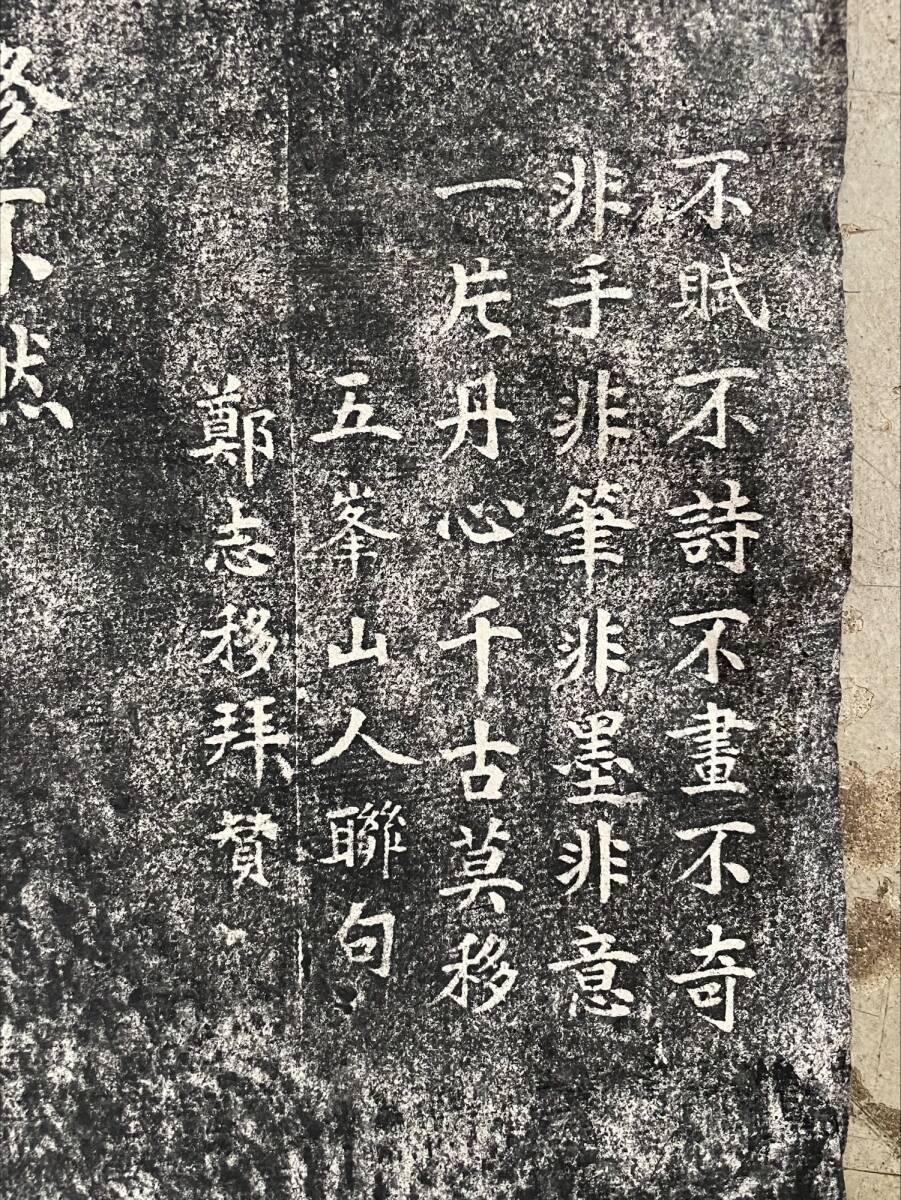 不賦不詩不畫不奇
非手非筆非墨非意
一片丹心千古莫移
五峯山人聯句
鄭志移拜贊
不然